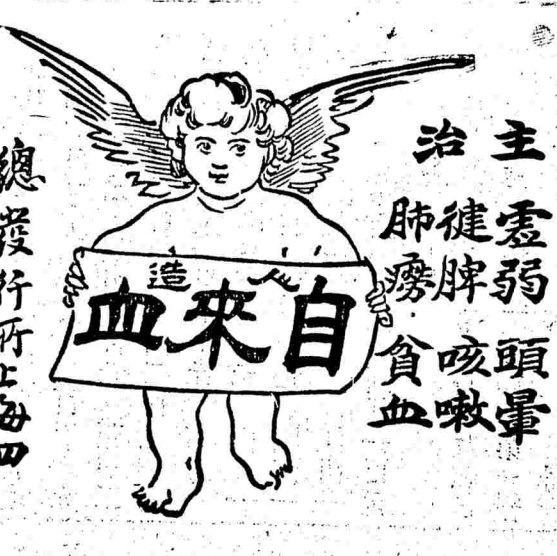 主治
虛弱 頭暈
徤脾 咳嗽
肺癆 貧血
人造
自來血
總發行所上海四